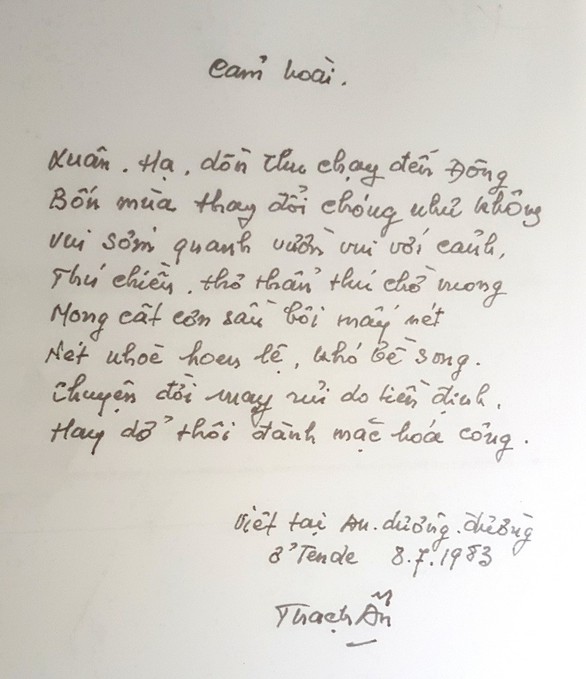 Cảm hoài.
Xuân. Hạ, dồn thu chạy đến Đông
Bốn mùa thay đổi chóng như không
Vui sớm quanh vườn vui với cảnh,
Thú chiều, thơ thẩn thú chờ mong
Mong cất cơn sầu bôi mấy nét
Nét nhoè hoen lệ, khó bề song.
Chuyện đời may rủi do tiền định,
Hay dở thôi đành mặc hoá công.
Viết tại An. dưỡng. đường
ở Tende 8.7.1983
Thạch Ấn